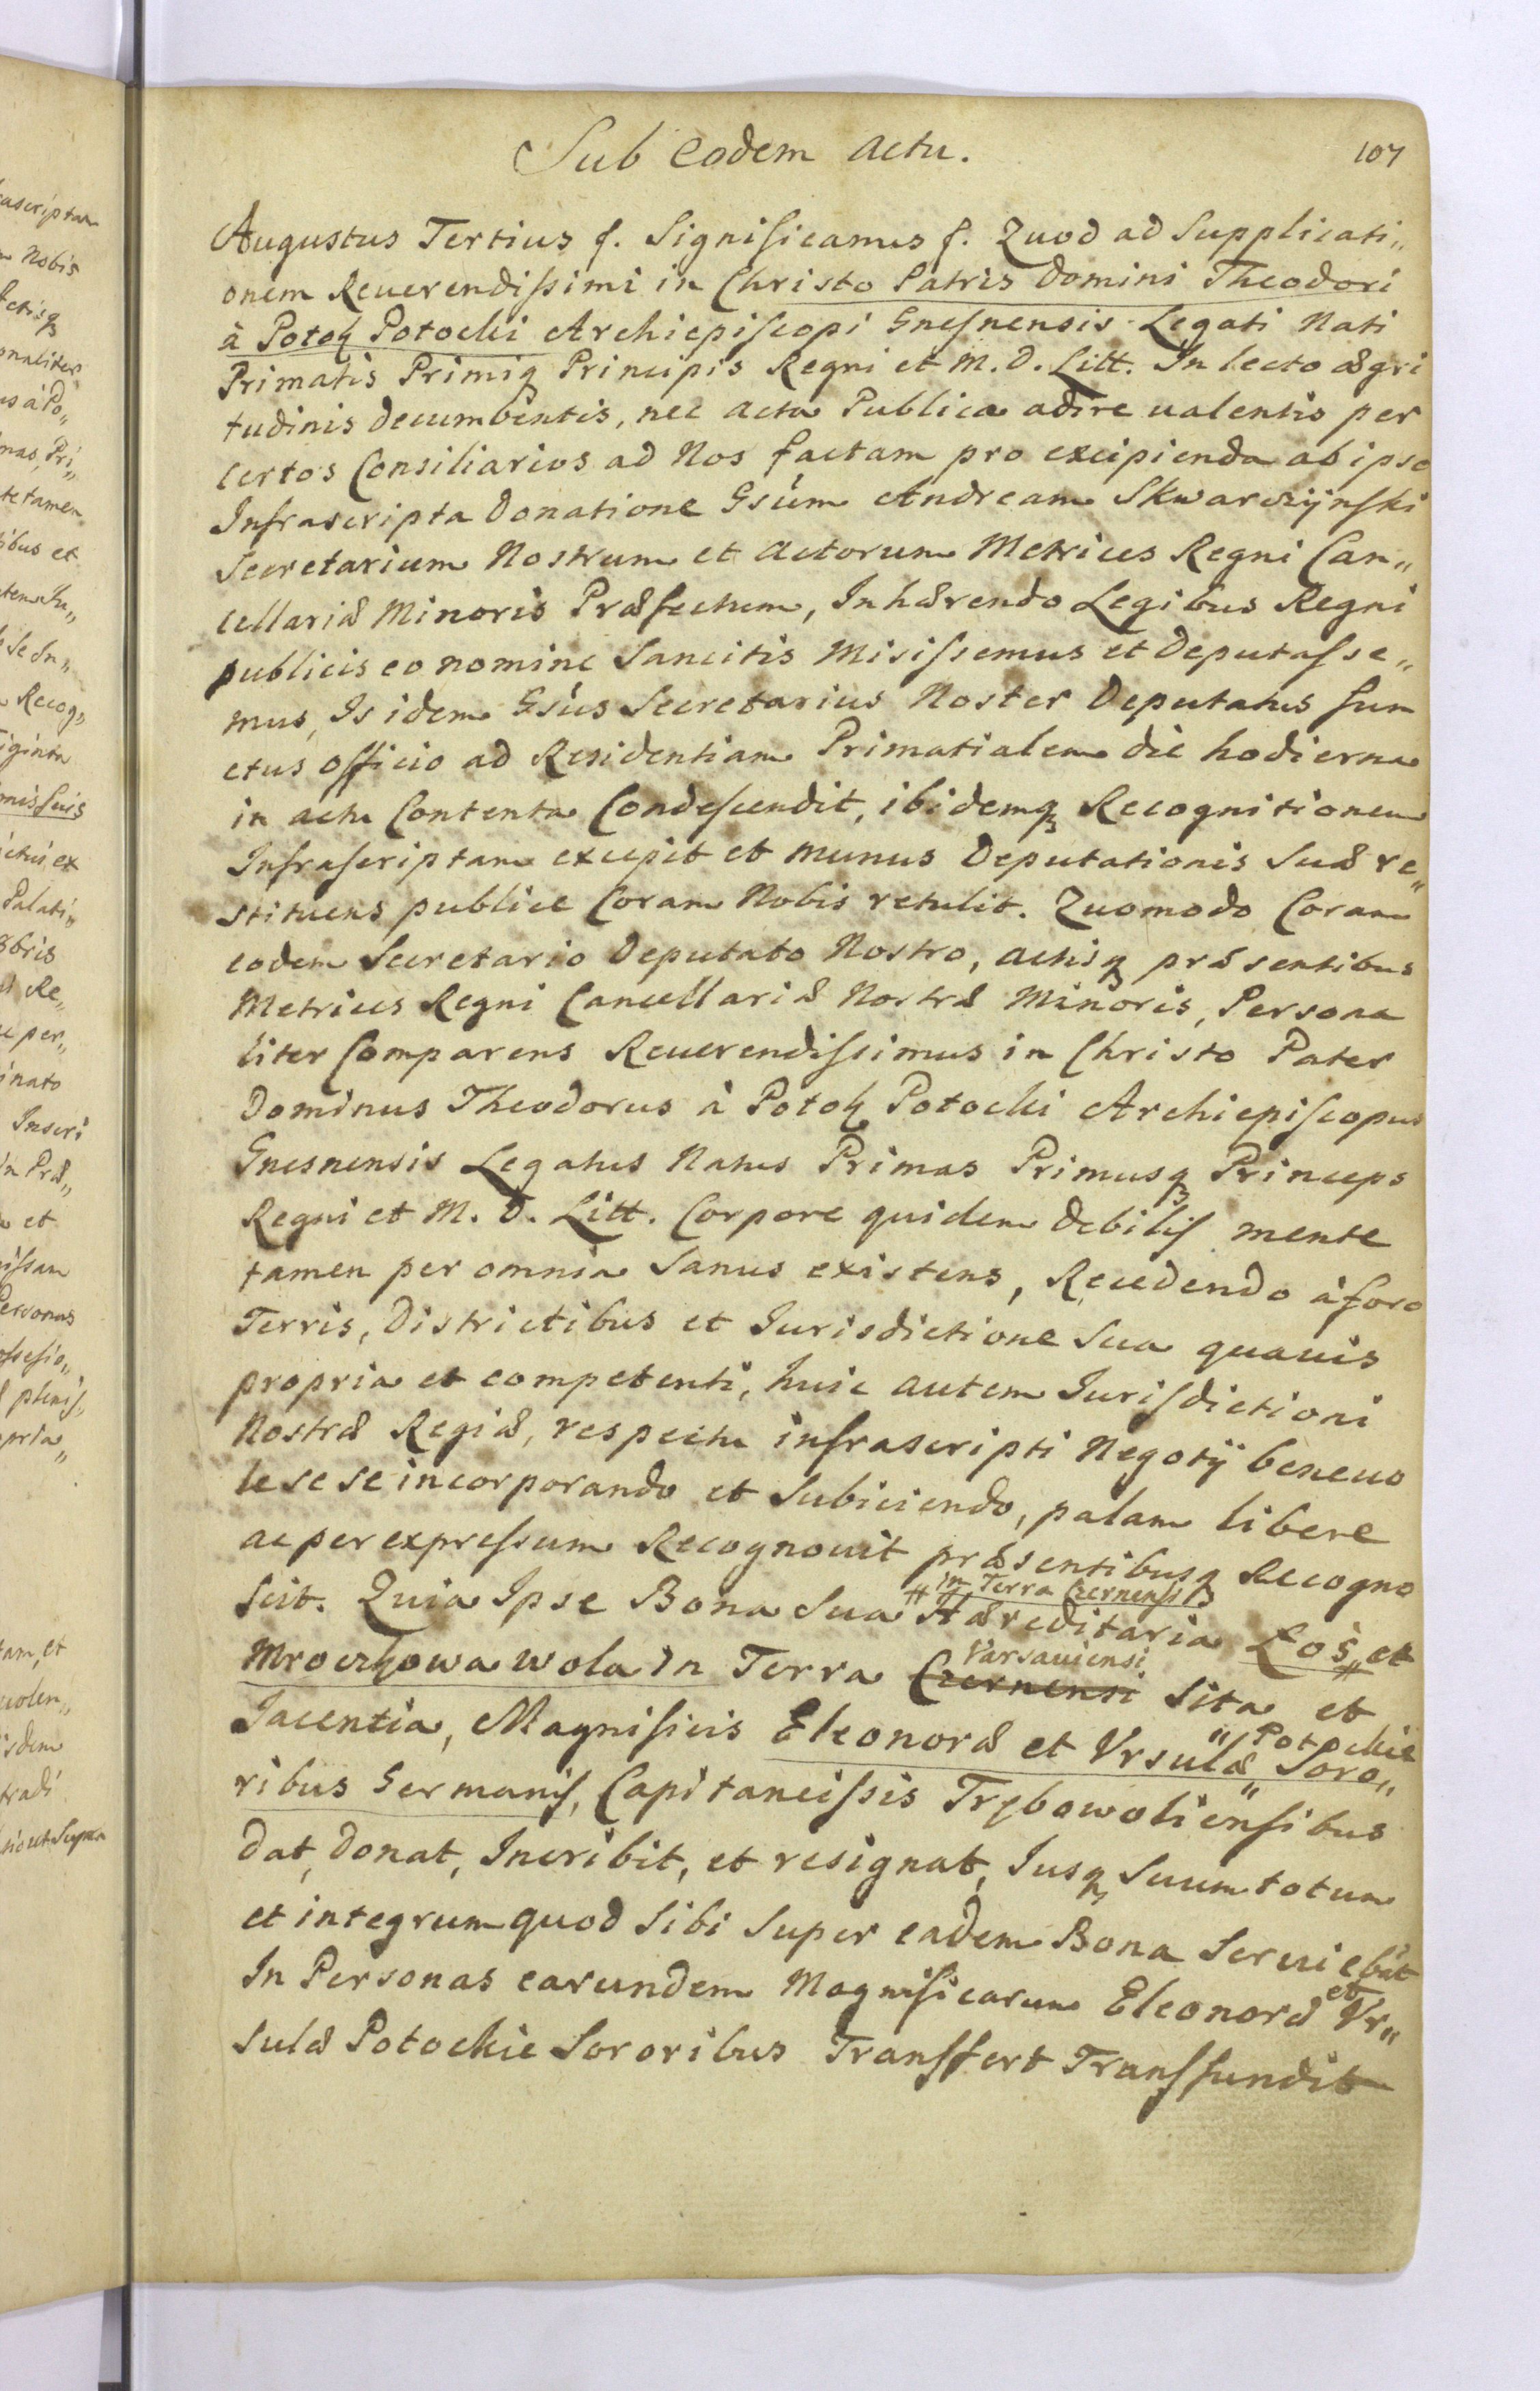 Sub eodem actu.
107
Augustus Tertius f. Significamus f. Quod ad Supplicati„
onem Reuerendissimi in Christo Patris Domini Theodori
à Potok Potocki Archiepiscopi Gnesnensis Legati Nati
Primatis Primiq Principis Regni et M. D. Litt. In lecto ægri
tudinis decumbentis, nec acta Publica adire ualentis per
certos Consiliarios ad Nos factam pro excipienda ab ipso
Infrascripta Donatione Gsúm Andream Skwarczÿnski
Secretarium Nostrum et actorum Metrices Regni Can„
cellariæ Minoris Præfectum, Inhærendo Legibus Regni
publicis eo nomine Sancitis Misissemus et Deputasse„
mus, Is idem Gsús Secretarius Noster Deputatus fun
ctus officio ad Residentiam Primatialem die hodierna
in actu Contenta Condescendit, ibidemq Recognitionem
Infrascriptam excepit et munus Deputationis Suæ re„
stituens publice Coram Nobis retulit. Quomodo Coram
eodem Secretario Deputato Nostro, actisq præsentibus
Metrices Regni Cancellariæ Nostræ Minoris, Persona
liter Comparens Reuerendissimus in Christo Pater
Dominus Theodorus à Potok Potocki Archiepiscopus
Gnesnensis Legatus Natus Primas Primusq Princeps
Regni et M. D. Litt. Corpore quidem debilis mente
tamen per omnia Sanus existens, Recedendo à foro
Terris, Districtibus et Iurisdictione Sua quauis
propria et competenti, huic autem Iurisdictioni
Nostræ Regiæ, respectu infrascripti Negotÿ beneuo
le se se incorporando et Subiciendo, palam libere
ac per expressum Recognouit præsentibusq Recogno
# in Terra Czernensi
scit. Quia Ipse Bona Sua Hæreditaria Łoś„ et
Varsauiensi
Mroczkowa wola in Terra Czernensi Sita et
„ Potockie
Iacentia, Magnificis Eleonoræ et Vrsulæ „ Soro„
ribus Germanis, Capitaneissis Trybowoliensibus
dat, donat, Incribit, et resignat, Iusq Suum totum
et integrum quod Sibi Super eadem Bona Seruiebat
et
In Personas earundem Magnificarum Eleonoræ Vr„
sulæ Potockie Sororibus Transfert Transfundit
ascriptam
Nobis
onaliter
as à Po„
mas, Pri„
te tamen
ibus et
Recog„
iginta
mis Suis
Palati„
Re„
per„
inato
Inseri
in Præ„
et
issam
Personas
ossessio„
pria„
tam, et
uolen„
sdem
tradi